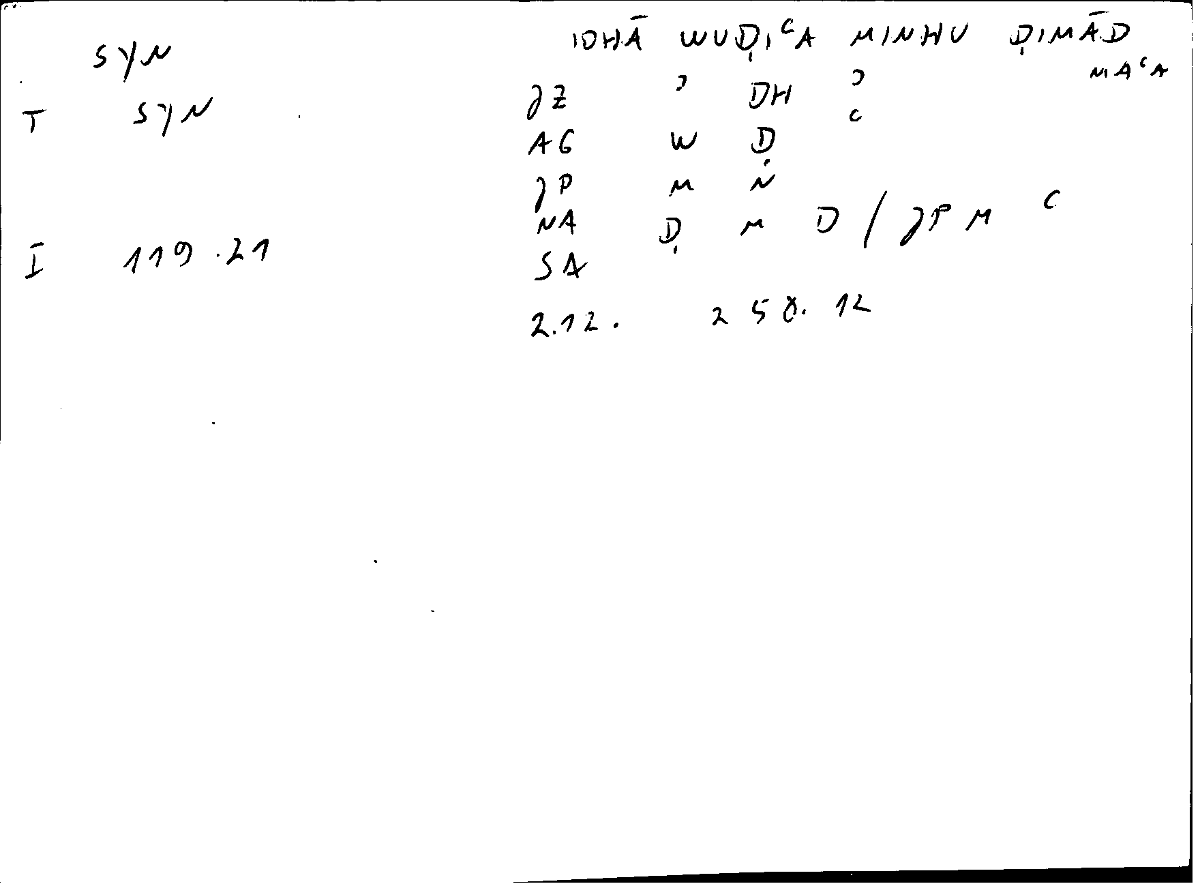 SYN
T SYN
I 119.21
IDHĀ WUḌIʿA MINHU ḌIMĀD
MAʿA
JZ ʾ DH ʾ
AG W Ḍ ʿ
JP M N
NA Ḍ M D / JP M ʿ
SA
2.12. 258.12